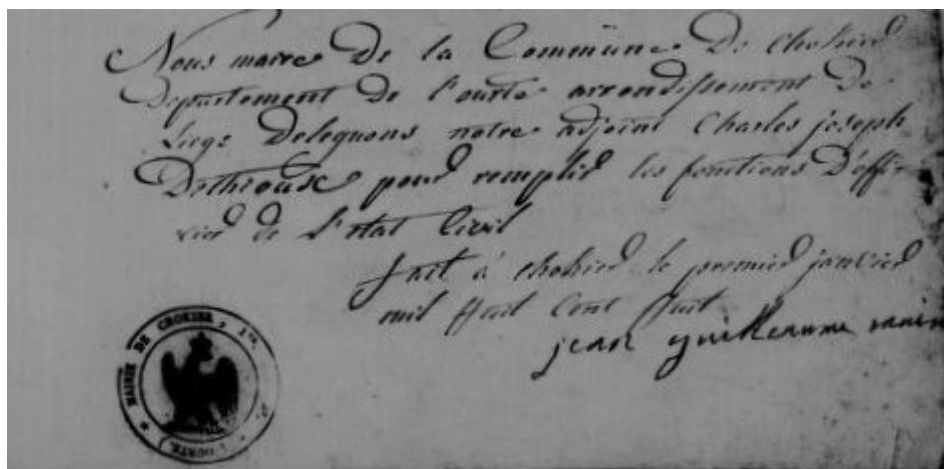 Nous maire De la Commune De Chokier
Departement De l'ourte arrondissement De
Liege Deleguons notre adjoint Charles joseph
Dethioux pour remplir les fonctions D'offi-
cier de l'etat Civil
fait à Chokier le premier janvier
mil huit Cent huit
jean guilleaume
MAIRIE DE CHOKIER,